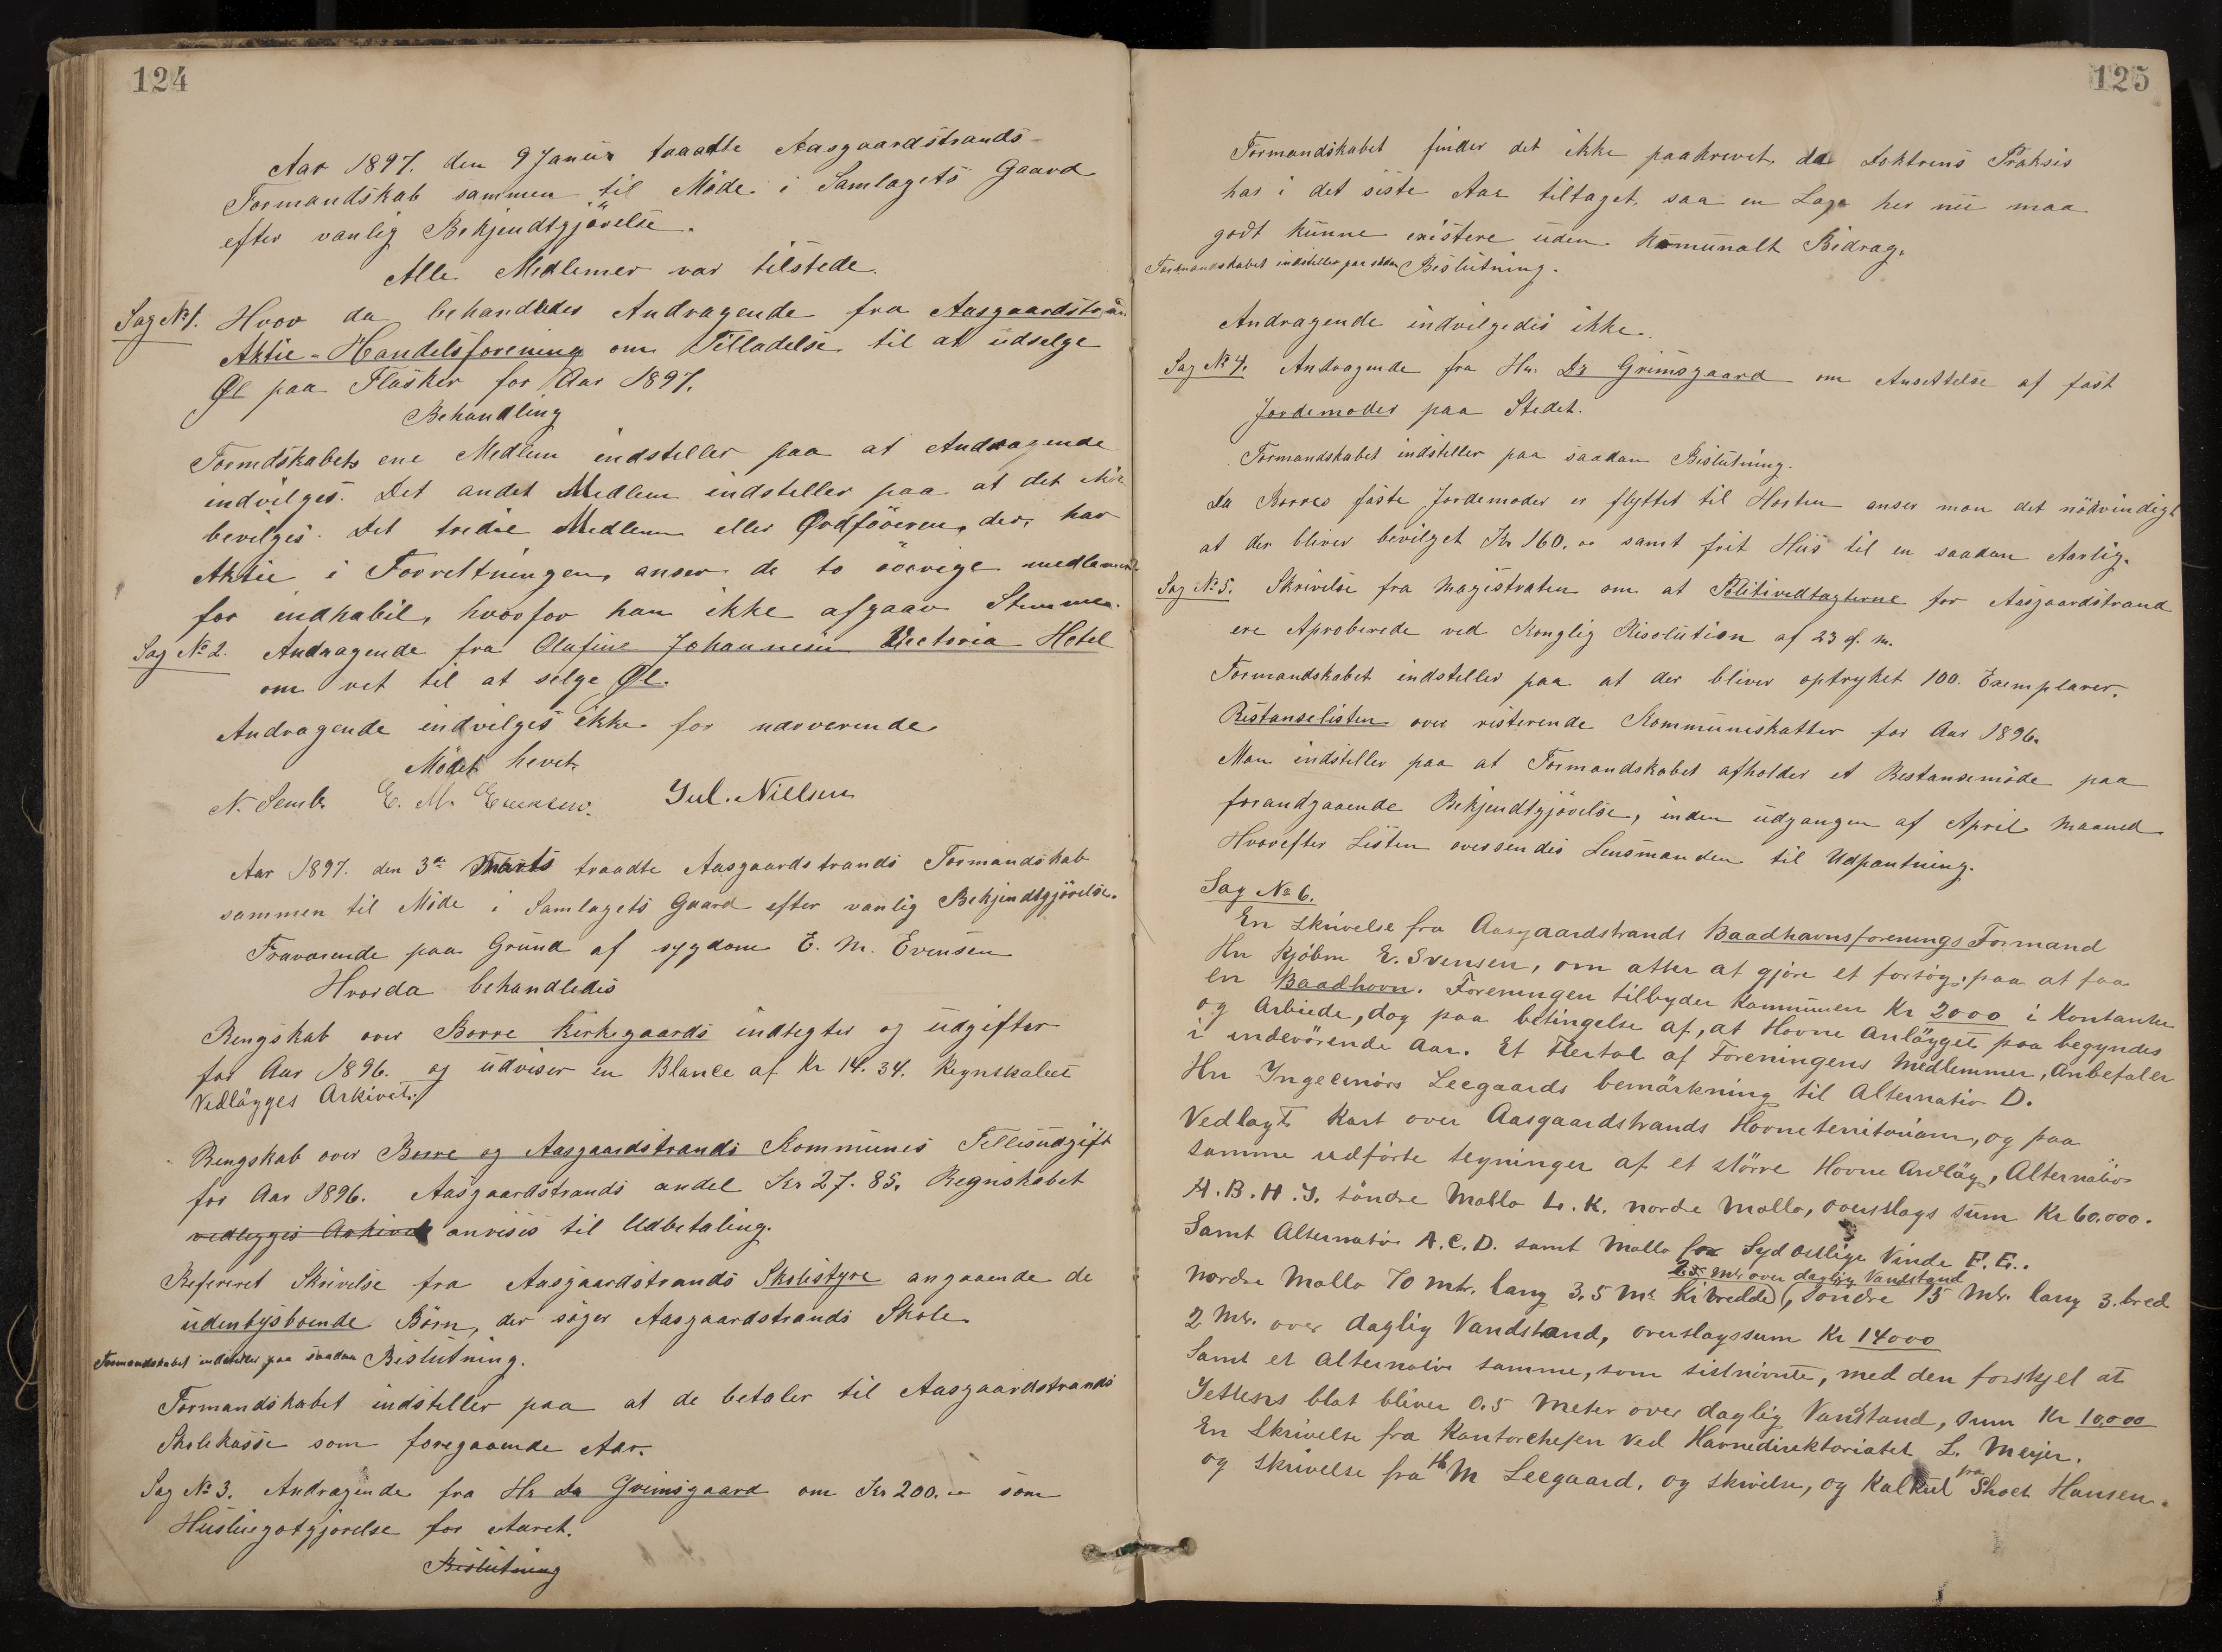 124
Aar 1897. den 9 Januar traadte Aasgaardstrands-
Formandskab sammen til Møde i Samlagets Gaard
efter vanlig Bekjendtgjörelse.
Alle Medlemer var tilstede.
Sag No 1. Hvor da behandledes Andragende fra Aasgaardstrand
Aktie-Handelsforening om Tilladelse til at udselge
Øl paa Flasker for Aar 1897.
Behandling
Formdskabets ene Medlem indstiller paa at Andragende
indvilges. Det andet Medlem indstiller paa at det ikke
bevilges. Det tredie Medlem eller Ordföreren, der har
Aktie i Forrettningen, anser de to övrige medlemer
for indhabil, hvorfor han ikke afgaar Stemme.
Sag No 2. Andragende fra Olufine Johannesen Victoria Hotel
om ret til at selge Øl.
Andragende indvilges ikke for nærverende
Mödet hevet.
N. Semb E. M. Evensen. Jul. Nielsen
Aar 1897. den 3de Marts traadte Aasgaardstrands Formandskab
sammen til Möde i Samlagets Gaard efter vanlig Bekjendtgjörelse.
Fraværende paa Grund af sygdom E. M. Evensen
Hvorda behandledes
Rengskab over Borre Kirkegaards indtegter og udgifter
for Aar 1896. og udviser en Blance af Kr 14.34. Regnskabet
Vedlägges Arkivet.
Rengskab over Borre og Aasgaardstrands Kommunes Fellesudgift
for Aar 1896. Aasgaardstrands andel Kr 27.85. Regnskabet
vedlegges Arkivet anvises til Udbetaling.
Refereret Skrivelse fra Aasgaardstrands Skolestyre angaaende de
udenbysboende Börn, der söger Aasgaardstrands Skole
Formandskabet indstiller paa saadan Beslutning.
Formandskabet indstiller paa at de betaler til Aasgaardstrands
Skolekasse som foregaaende Aar.
Sag No 3. Andragende fra Hr Dr Grimsgaard om Kr 200.00 som
Husliegotgjörelse for Aaret.
Beslutning
125
Formandskabet finder det ikke paakrevet, da Doktrens Praksis
har i det siste Aar tiltaget, saa en Lege her nu maa
godt kunne existere uden Komunalt Bidrag.
Formandskabet indstiller paa sadan Beslutning.
Andragende indvilgedes ikke.
Sag No 4. Andragende fra Hr. Dr Grimsgaard om Ansettelse af fast
Jordemoder paa Stedet.
Formandskabet indstiller paa saadan Beslutning.
Da Borres faste Jordemoder er flyttet til Horten anser man det nödvindigt
at der bliver bevilget Kr 160.00 samt frit Hus til en saadan Aarlig.
Sag No 5. Skrivelse fra Magistraten om at Politivedtagterne for Aasgaardstrand
ere Aproberede ved Konglig Resolution af 23 f. m.
Formandskabet indstiller paa at der bliver optryket 100. Exemplarer.
Restanselisten over resterende Kommuneskatter for Aar 1896.
Man indstiller paa at Formandskabet afholder et Restansemöde paa
forandgaaende Bekjendtgjörelse, inden udgangen af April Maaned
Hvorefter Listen oversendes Lensmanden til Udpantning.
Sag No 6.
En skrivelse fra Aasgaardstrands Baadhavnsforenings Formand
Hr Kjöbm E. Svensen, om atter at gjöre et forsög, paa at faa
en Baadhavn. Foreningen tilbyder Kommunen Kr 2000 i Kontanter
og Arbiede, dog paa betingelse af, at Havne Anlägget paa begyndes
i indevörende Aar. Et Flertal af Foreningens Medlemmer, Anbefaler
Hr Ingeeniörs Leegaards bemärkning til Alternativ D.
Vedlagt Kart over Aasgaardstrands Havneterritorium, og paa
samme udförte tegninger af et större Havne Anläg, Alternativ
A. B. H. J. söndre Mollo L. K. nordre Mollo, overslags sum Kr 60.000.
Samt Alternativ A. C. D. samt Mollo for Syd Östlige Vinde F. G..
2.5 mtr over daglig Vandstand
nordre Mollo 70 mtr. lang 3,5 mtr Ki bredde, Söndre 15 Mtr. lang 3. bred
2 Mtr. over daglig Vandstand, overslagssum Kr 14000
Samt et Alternativ samme, som sistnevnte, med den forskjel at
Jetteens blot bliver 0.5 Meter over daglig Vandstand, Sum Kr 10,000
En skrivelse fra Kontorchefen ved Havnedirektoriatet L. Meyer.
og skrivelse fra Hr M Leegaard, og skrivelse, og Kalkul fra Skoet Hansen.